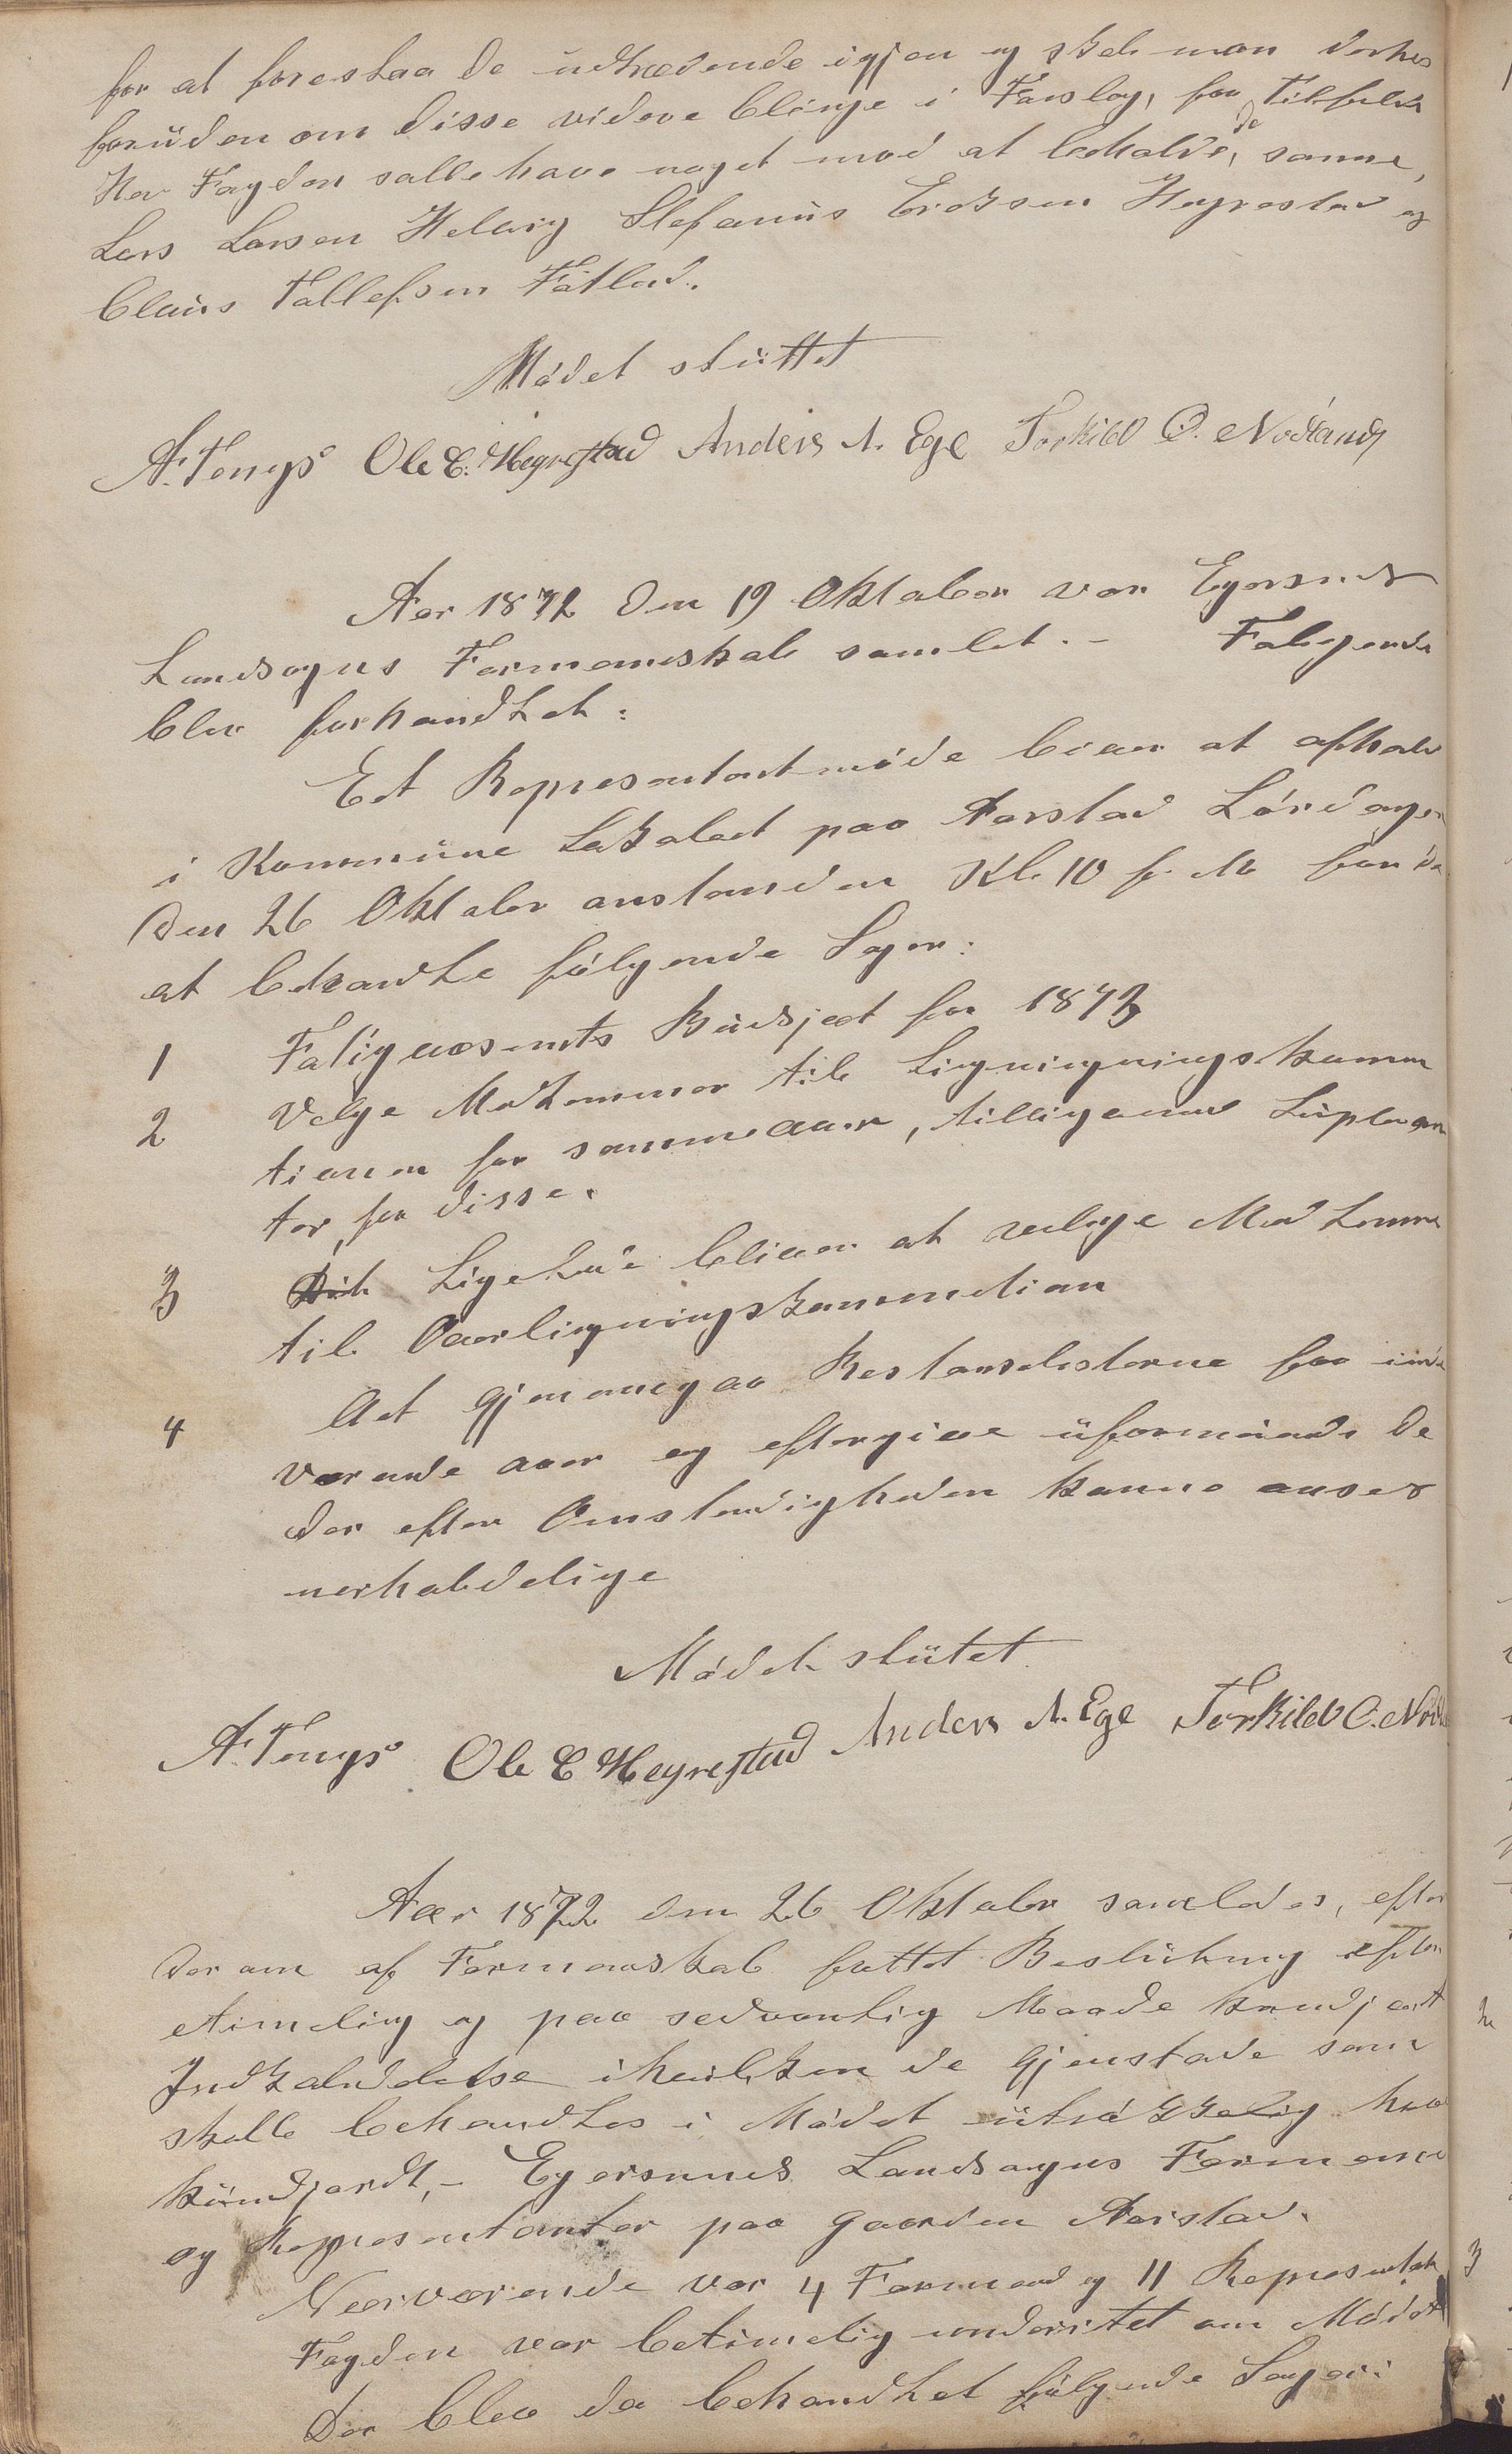 for at forestaa de udtrædende igjen og skal man derhos
foruden om disse videre bringe i Forslag, for Tilfelde
Her Fogden skulle have noget mod at beholde de samme,
Lars Larsen Helvig Stefanus Ericksen Hegrestad og
Claus Tollefsen Fotland.
Mödet sluttet
A. Tengs Ole E. Hegrestad Anders A. Ege Torkild O. Nodland
Aar 1872 den 19 Oktober var Egersunds
Landsogns Formandskab samlet. - Fölgende
blev forhandlet:
Et Representantmöde bliver at afholde
i Kommune Lokalet paa Aarstad Lördagen
den 26 Oktober anstunden Kl. 10 f. M for da
at behandle fölgende Sager:
1 Fattigvæsenets Budsjet for 1873
2 Velge Medlemmer til Ligningningskomm
tionen for samme aar, tilligemed Suplean
ter for disse.
3 Ligeledes bliver at velge Medlemme
til Overligningskommitionen
4 At gjennemgaa Restanselisterne for inde
værende aar og eftergive uformuende De
der efter Omstendigheden kunne anses
uerholdelige
Mödet slutet
A. Tengs Ole E Hegrestad Anders A. Ege Torkild O. Nodl
Aar 1872 den 26 Oktober samledes, efter
derom af Formandskab fattet Beslutning efter
etimelig og paa sedvanlig Maade kundjort
Indkaldelse ihvilken de Gjenstade som
skulle behandles i Mödet udtrökkelig var
kundjordt, - Egersunds Landsogns Formend
og Representanter paa Gaarden Aarstad.
Nærværende var 4 Formend og 11 Representant
Fogden var betimelig underrettet om Mödet
Der blev da behandlet fölgende Sager: